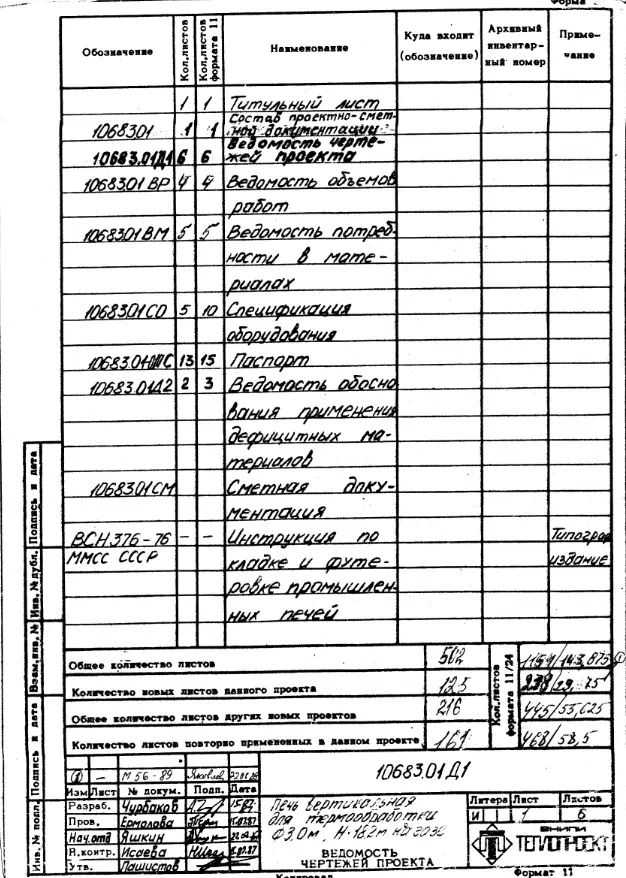 Форма
Обозначение
Кол.листов
Кол.листов формата 11
Наименование
Куда входит (обозначение)
Архивный инвентарный номер
Приме-
чание
1 1 Титульный лист
Состав проектно-смет-
10683.01 1 1 ной документации
Ведомость черте-
10683.01Д1 6 6 жей проекта
10683.01 ВР 4 4 Ведомость объемов
работ
10683.01 ВМ 5 5 Ведомость потреб-
ности в мате-
риалах
10683.01 СО 5 10 Спецификация
оборудования
10683.01 ПС 13 15 Паспорт
10683.01Д2 2 3 Ведомость обосно
вания применения
дефицитных ма-
териалов
10683.01 СМ Сметная доку-
ментация
ВСН 376-76 - - Инструкция по Типогр
ММСС СССР кладке и футе- издание
ровке промышлен
ных печей
Общее количество листов 502
Количество новых листов данного проекта 125
Общее количество листов других новых проектов 216
Количество листов повторно примененных в данном проекте 161
Кол.листов формата 11/24
1151/143,875
238/29,75
445/55,625
468/58,5
Инв. № подл. Подпись и дата Взам.инв. № Инв. № дубл. Подпись и дата
1 - М 56-89
Изм Лист № докум. Подп. Дата
10683.01Д1
Разраб. Чурбаков
Пров. Ермолова
Нач.отд Яшкин
Н.контр. Исаева
Утв. Пашистов
Печь вертикальная
для термообработки
Ф3,0м Н-18,2м
ВЕДОМОСТЬ
ЧЕРТЕЖЕЙ ПРОЕКТА
Литера Лист Листов
И 1 6
ВНИПИ
ТЕПЛОПРОЕКТ
Копировал
Формат 11